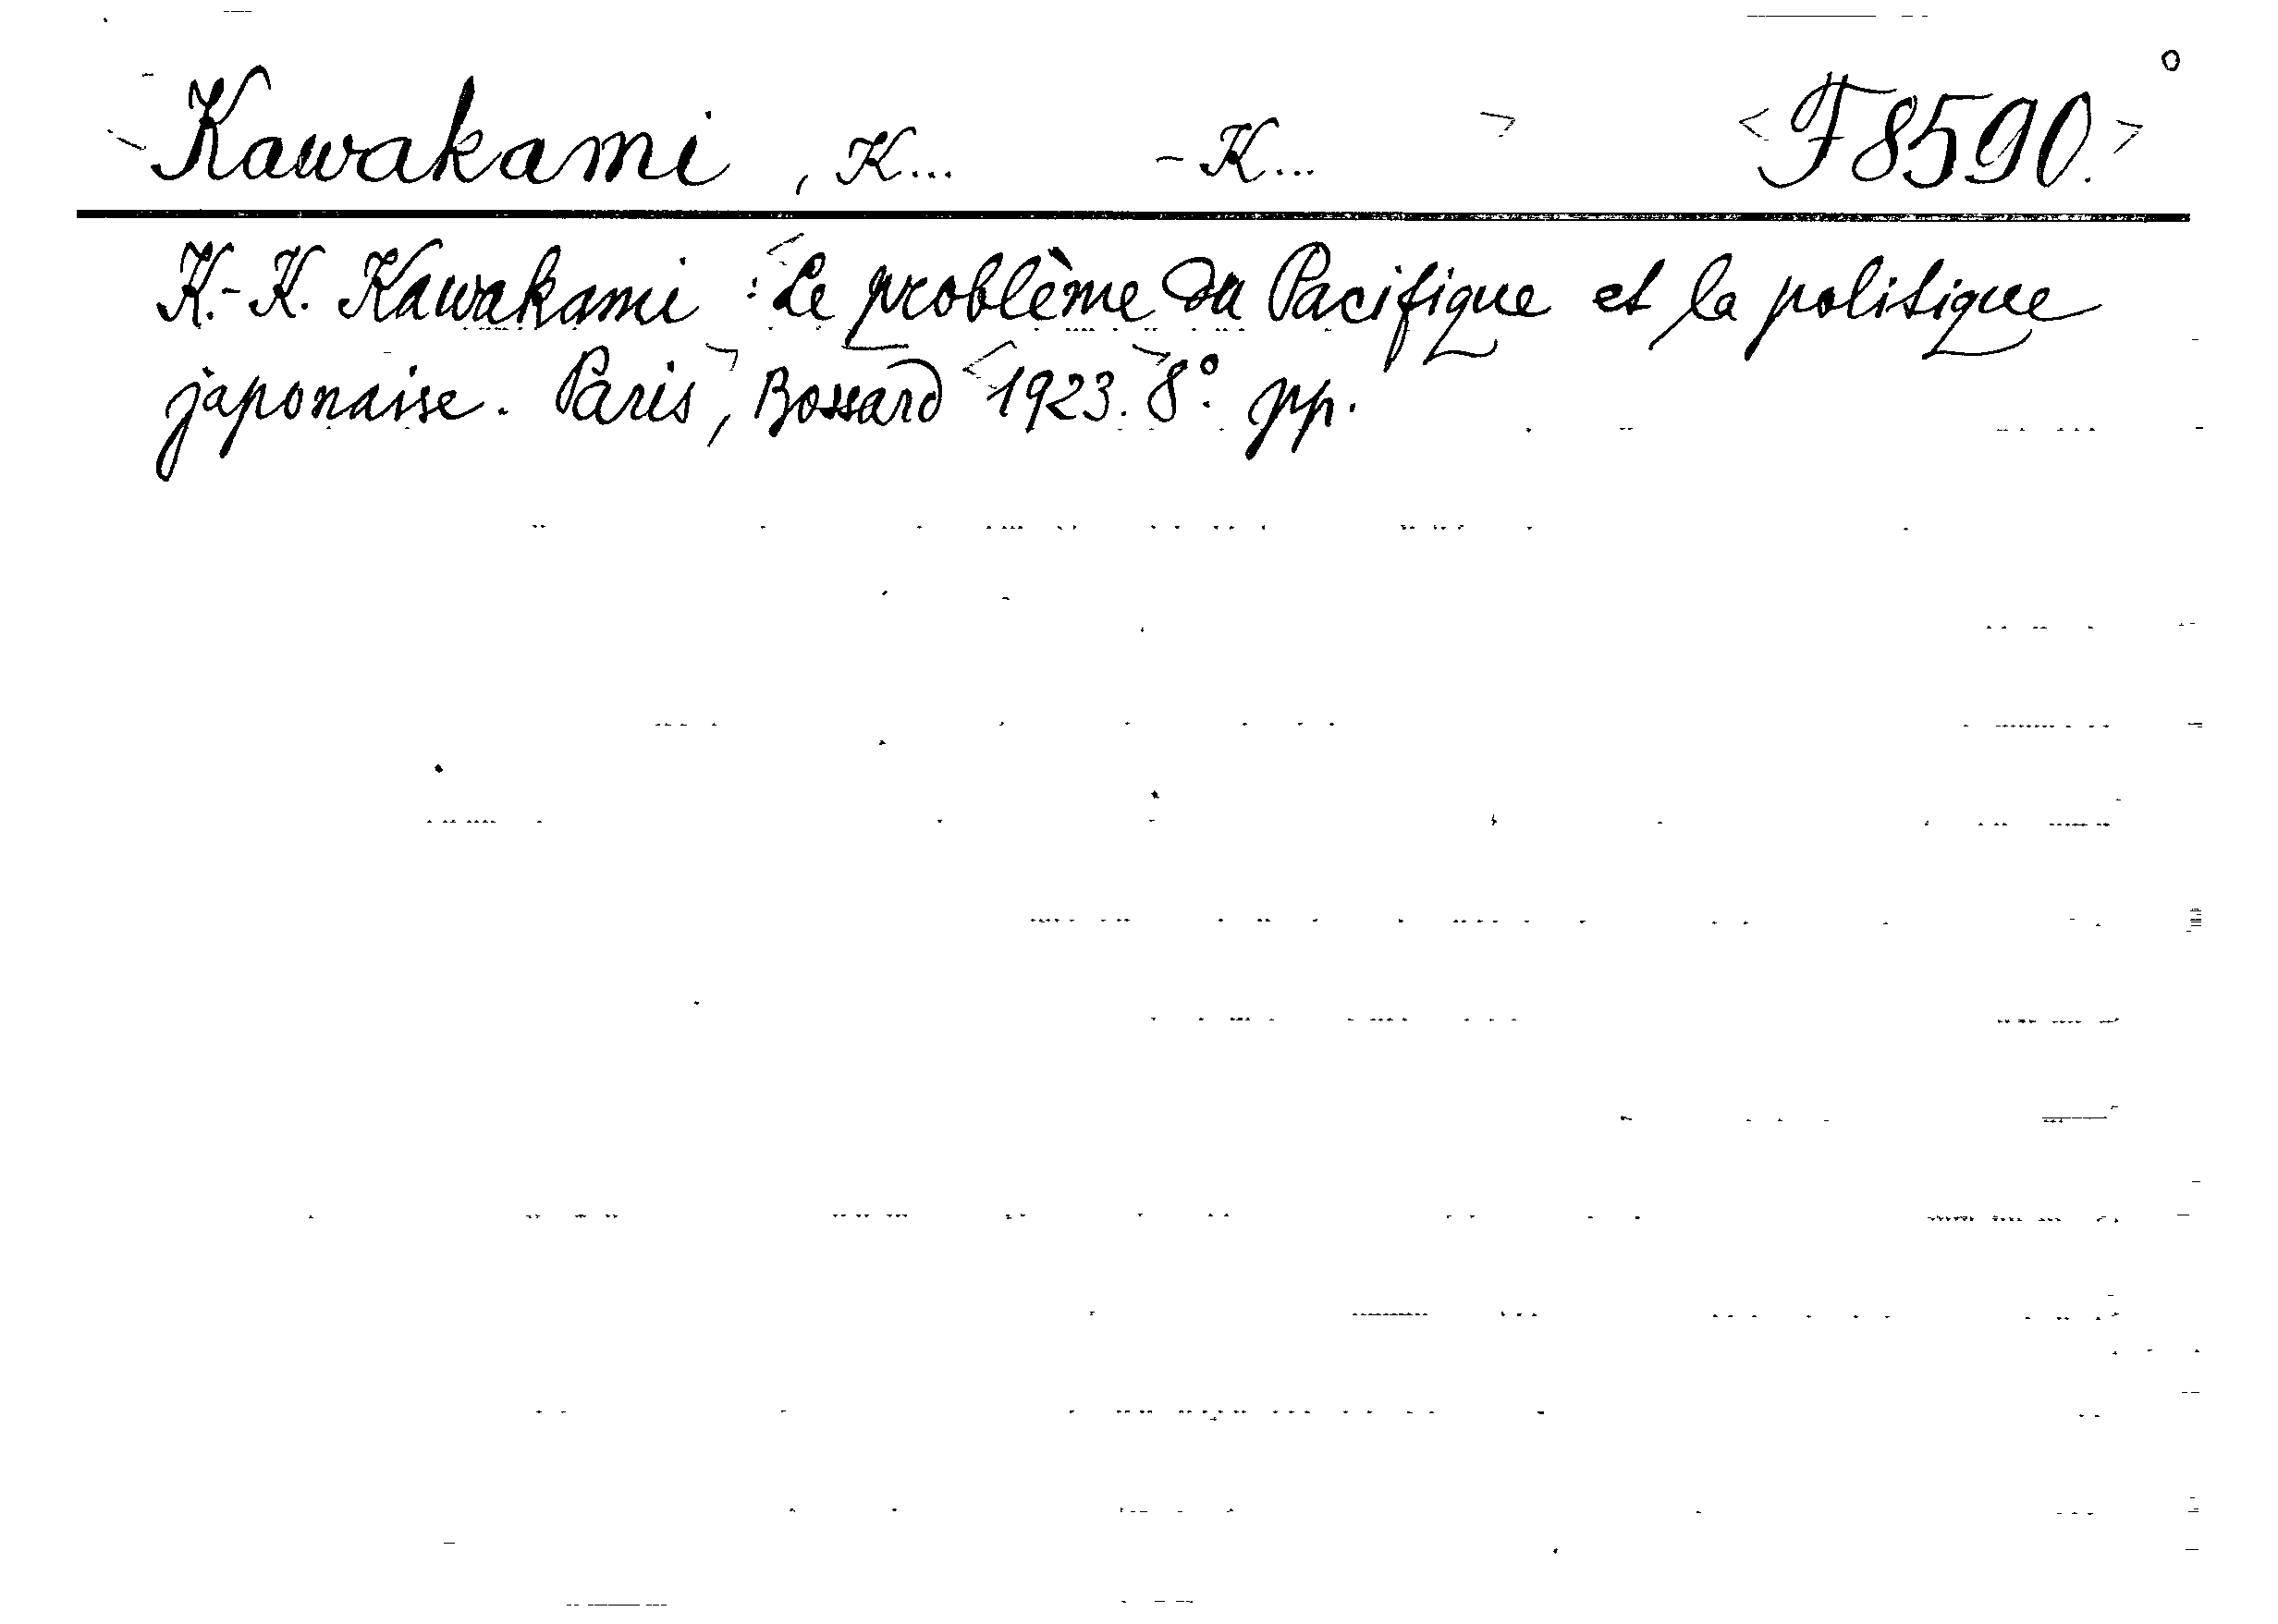 Kawakami, K... -K... F8590.
K.-K. Kawakami : Le problème du Pacifique et la politique
japonaise. Paris, Bossard 1923. 8° pp.